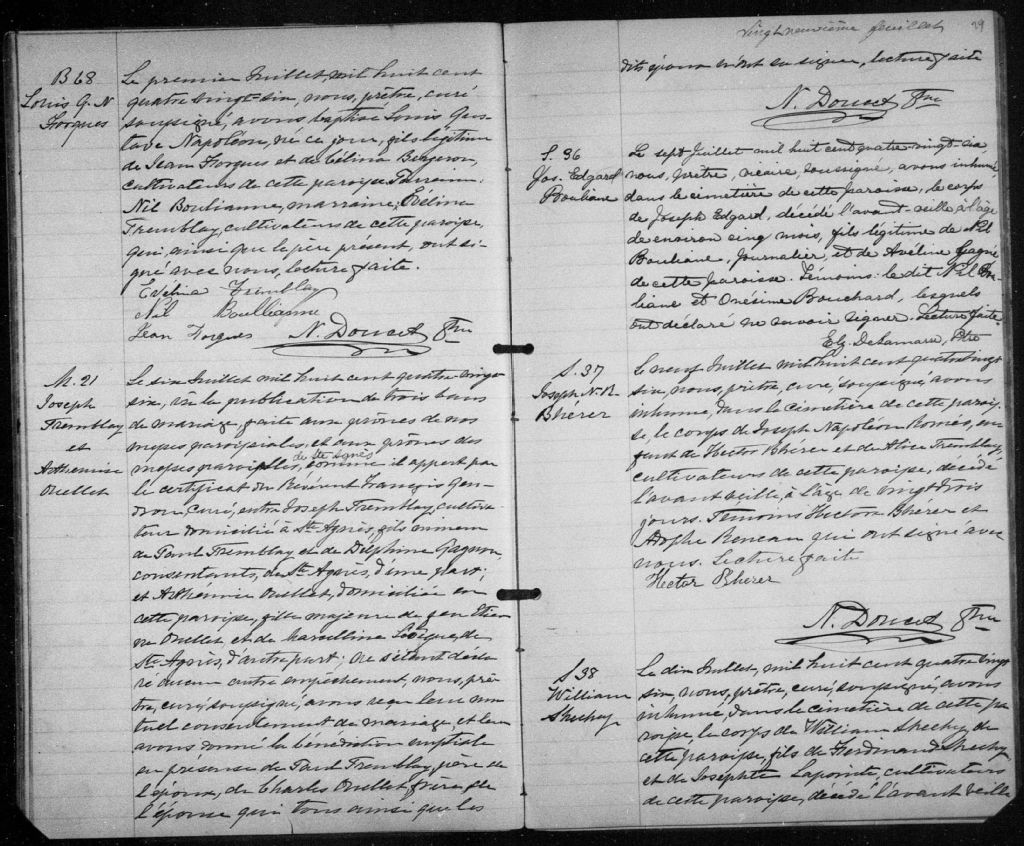 B 68
Louis G. N
Forgues
Le premier Juillet mil huit cent
quatre vingt-six, nous, prêtre, curé
soussigné, avons baptisé Louis Gus-
tave Napoléon, né ce jour, fils légitime
de Jean Forgues et de Célina Bergeron,
cultivateurs de cette paroisse. Parrain:
Nil Boulianne, marraine, Evélina
Tremblay, cultivateurs de cette paroisse,
qui, ainsi que le père present, ont si-
gné avec nous, lecture faite.
Evelina Tremblay
Nil Boullianne
Jean Forgues N. Doucet Ptre
M. 21
Joseph
Tremblay
et
Arthémise
Ouellet
Le six Juillet mil huit cent quatre vingt
six, vu la publication de trois bans
de mariage, faite aux prônes de nos
messes paroissiales, et aux prônes des
messes paroissiales, de Ste Agnès comme il appert par
le certificat du Révérend François Gen-
dron, curé, entre Joseph Tremblay, cultiva-
teur domicilié à Ste Agnès, fils mineur
de Paul Tremblay et de Delphine Gagnon,
consentants, de Ste Agnès, d'une part;
et Arthémise Ouellet, domiciliée en
cette paroisse, fille majeure de feu Etien-
ne Ouellet et de Marcelline de
Ste Agnès, d'autre part; ne s'étant décla-
ré aucun autre empêchement, nous, prê-
tre, curé, soussigné, avons reçu leur mu-
tuel consentement de mariage, et leur
avons donné la bénédiction nuptiale
en présence de Paul Tremblay, père de
l'époux, de Charles Ouellet, frère de
l'épouse qui tous ainsi que les
Vingt neuvième feuillet 29
dits époux n'ont su signer, lecture faite
N. Doucet Ptre
S. 36
Jos. Edgard
Bouliane
Le sept Juillet mil huit cent quatre-vingt-six,
nous, prêtre, vicaire, soussigné, avons inhumé
dans le cimetière de cette paroisse, le corps
de Joseph Edgard, décédé l'avant-veille à l'âge
de environ cinq mois, fils légitime de Nil
Bouliane, journalier, et de Avéline Gagné
de cette paroisse. Témoins: le dit Nil Bou-
liane et Onésime Bouchard, lesquels
ont déclaré ne savoir signer. Lecture faite.
Elz. DeLamarre, Ptre
S. 37
Joseph N. R.
Bhérer
Le neuf Juillet mil huit cent quatre vingt
six, nous, prêtre, curé, soussigné, avons
inhumé, dans le cimetière de cette parois-
se, le corps de Joseph Napoléon Roméo, en-
fant de Hector Bhérer et de Alice Tremblay,
cultivateurs de cette paroisse, décédé
l'avant veille, à l'âge de vingt trois
jours. Témoins Hector Bhérer et
qui ont signé avec
nous. Lecture faite
Hector Bhérer
N. Doucet Ptre
S 38
William
Sheehy
Le dix Juillet, mil huit cent quatre vingt
six, nous, prêtre, curé, soussigné, avons
inhumé, dans le cimetière de cette pa-
roisse, le corps de William Sheehy, de
cette paroisse, fils de Ferdinand Sheehy
et de Josephte Lapointe, cultivateurs
de cette paroisse, décédé l'avant veille